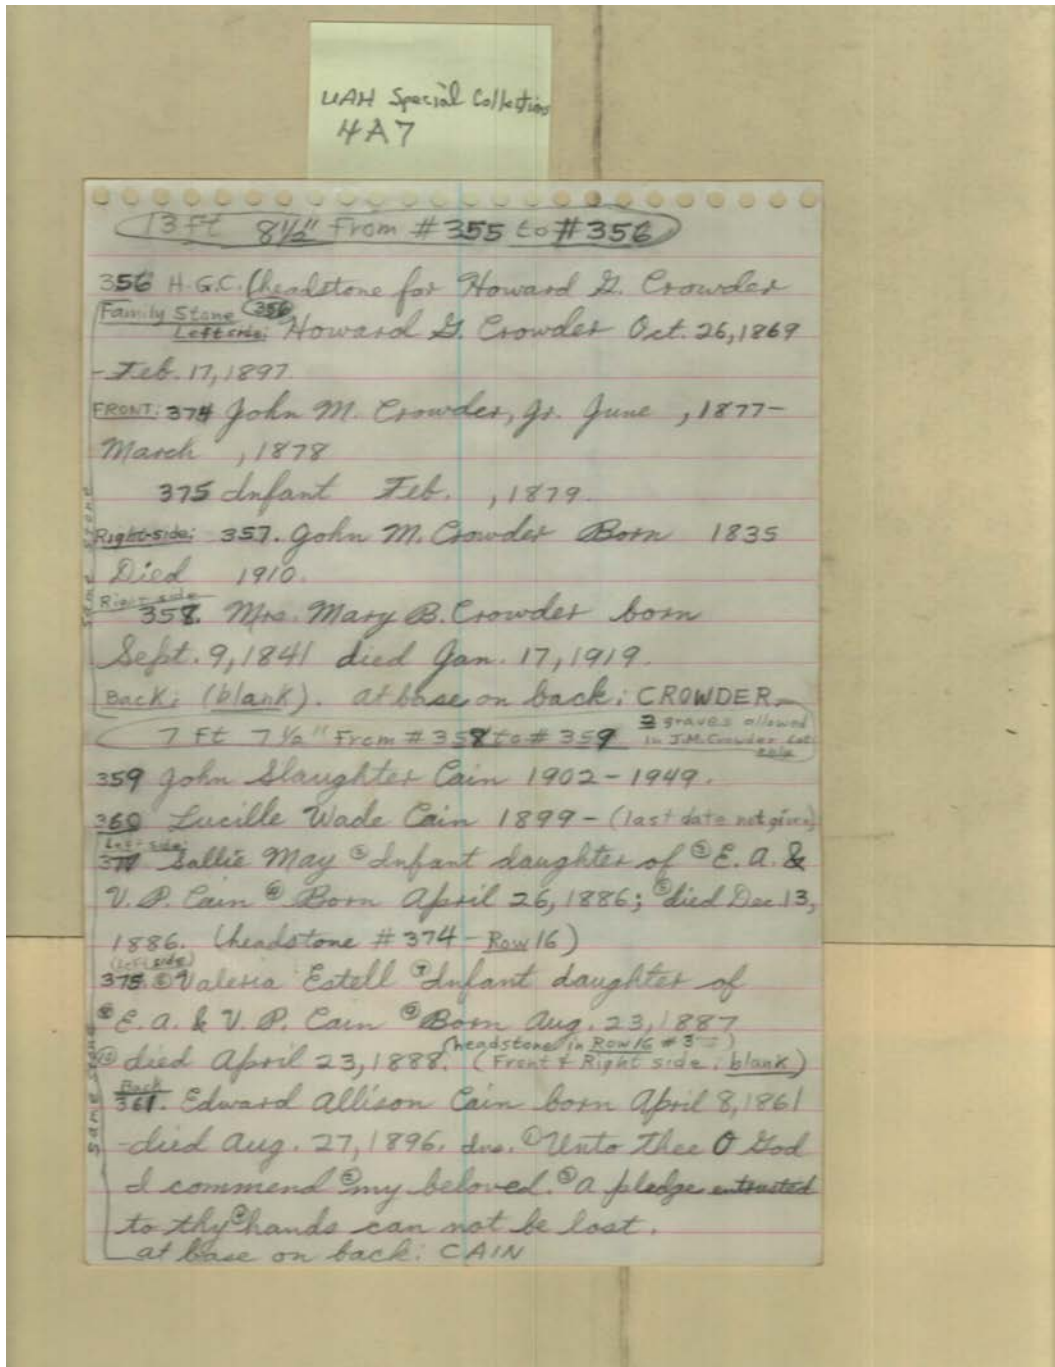 UAH Special Collections
4A7
13 ft 8 1/2" From #355 to #356
356 H.G.C. (headstone for Howard G. Crowder
Family Stone 356
Left side: Howard G. Crowder Oct. 26, 1869
- Feb. 17, 1897.
FRONT: 374 John M. Crowder, Jr. June , 1877-
March , 1878
375 Infant Feb. , 1879.
Right side: 357. John M. Crowder Born 1835
Died 1910.
Right side
358. Mrs. Mary B. Crowder born
Sept. 9, 1841 died Jan. 17, 1919.
Back: (blank). at base on back: CROWDER
same stone
graves allowed
7 Ft 7 1/2" From #358 to #359 in J.M. Crowder Lot
359 John Slaughter Cain 1902-1949.
360 Lucille Wade Cain 1899- (last date not given)
Left side:
Sallie May ② Infant daughter of ③ E. A. &
V. P. Cain ④ Born April 26, 1886; ⑤ died Dec 13,
1886. (headstone #374 - Row 16)
(Left side)
375. ⑥ Valeria Estell ⑦ Infant daughter of
⑧ E. A. & V. P. Cain ⑨ Born Aug. 23, 1887
(headstone in Row 16 #3
⑩ died April 23, 1888. (Front & Right side: blank)
Back
361. Edward Allison Cain born April 8, 1861
-died Aug. 27, 1896. Ins. ① Unto Thee O God
I commend ② my beloved. ③ a pledge entrusted
to thy ④ hands can not be lost.
at base on back: CAIN
same stone